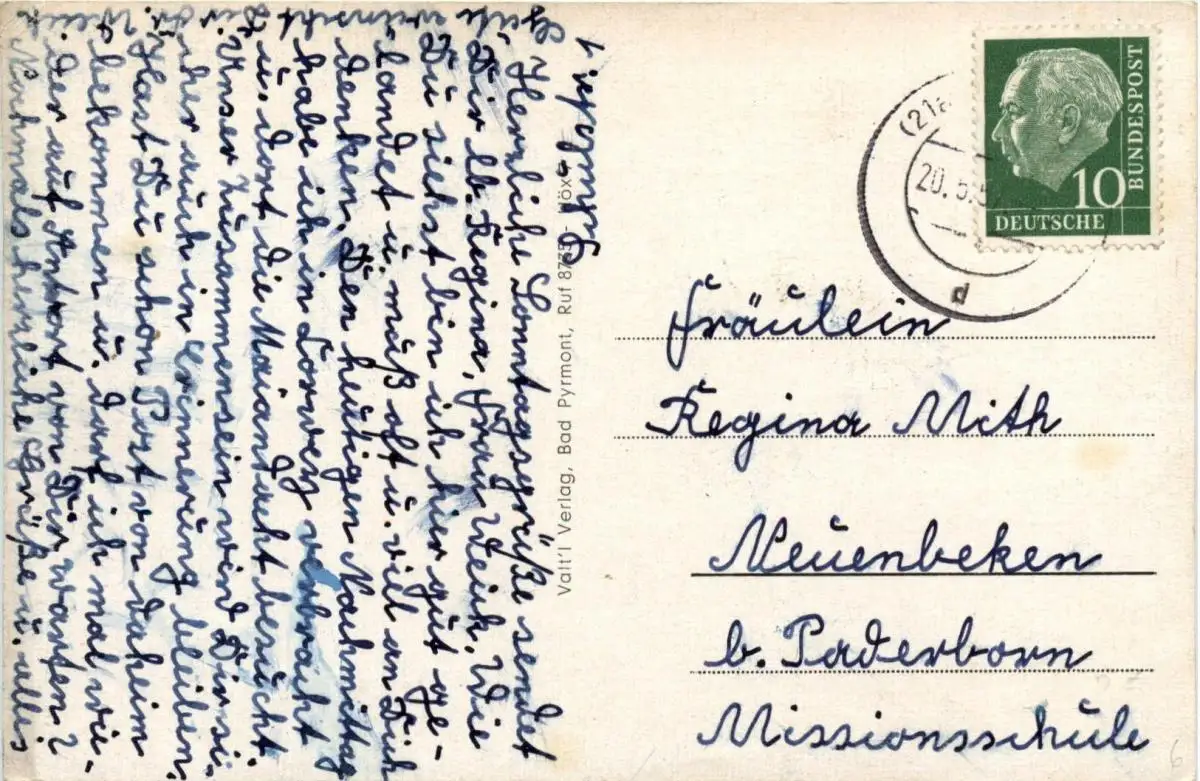 Grundst. 1
Herzliche Sonntagsgrüße sendet
Dir lb. Regina, Frau Weick. Wie
Du siehst bin ich hier gut ge-
landet u. muß oft u. viel an Dich
denken. Den heutigen Nachmittag
habe ich in Lorweg verbracht
u. dort die Maiandacht besucht.
Unser Zusammensein wird Dir si-
cher auch in Erinnerung bleiben.
Hast Du schon Post von daheim
bekommen u. darf ich mal wie-
der auf Antwort von Dir warten?
Nochmals herzliche Grüße u. alles
Gute wünscht
Dir Fr. Weick
Valt'l Verlag, Bad Pyrmont, Ruf 8735 - Höxt
(21a
20. 5. 5
d
10
DEUTSCHE
BUNDESPOST
Fräulein
Regina Mith
Neuenbeken
b. Paderborn
Missionsschule
6